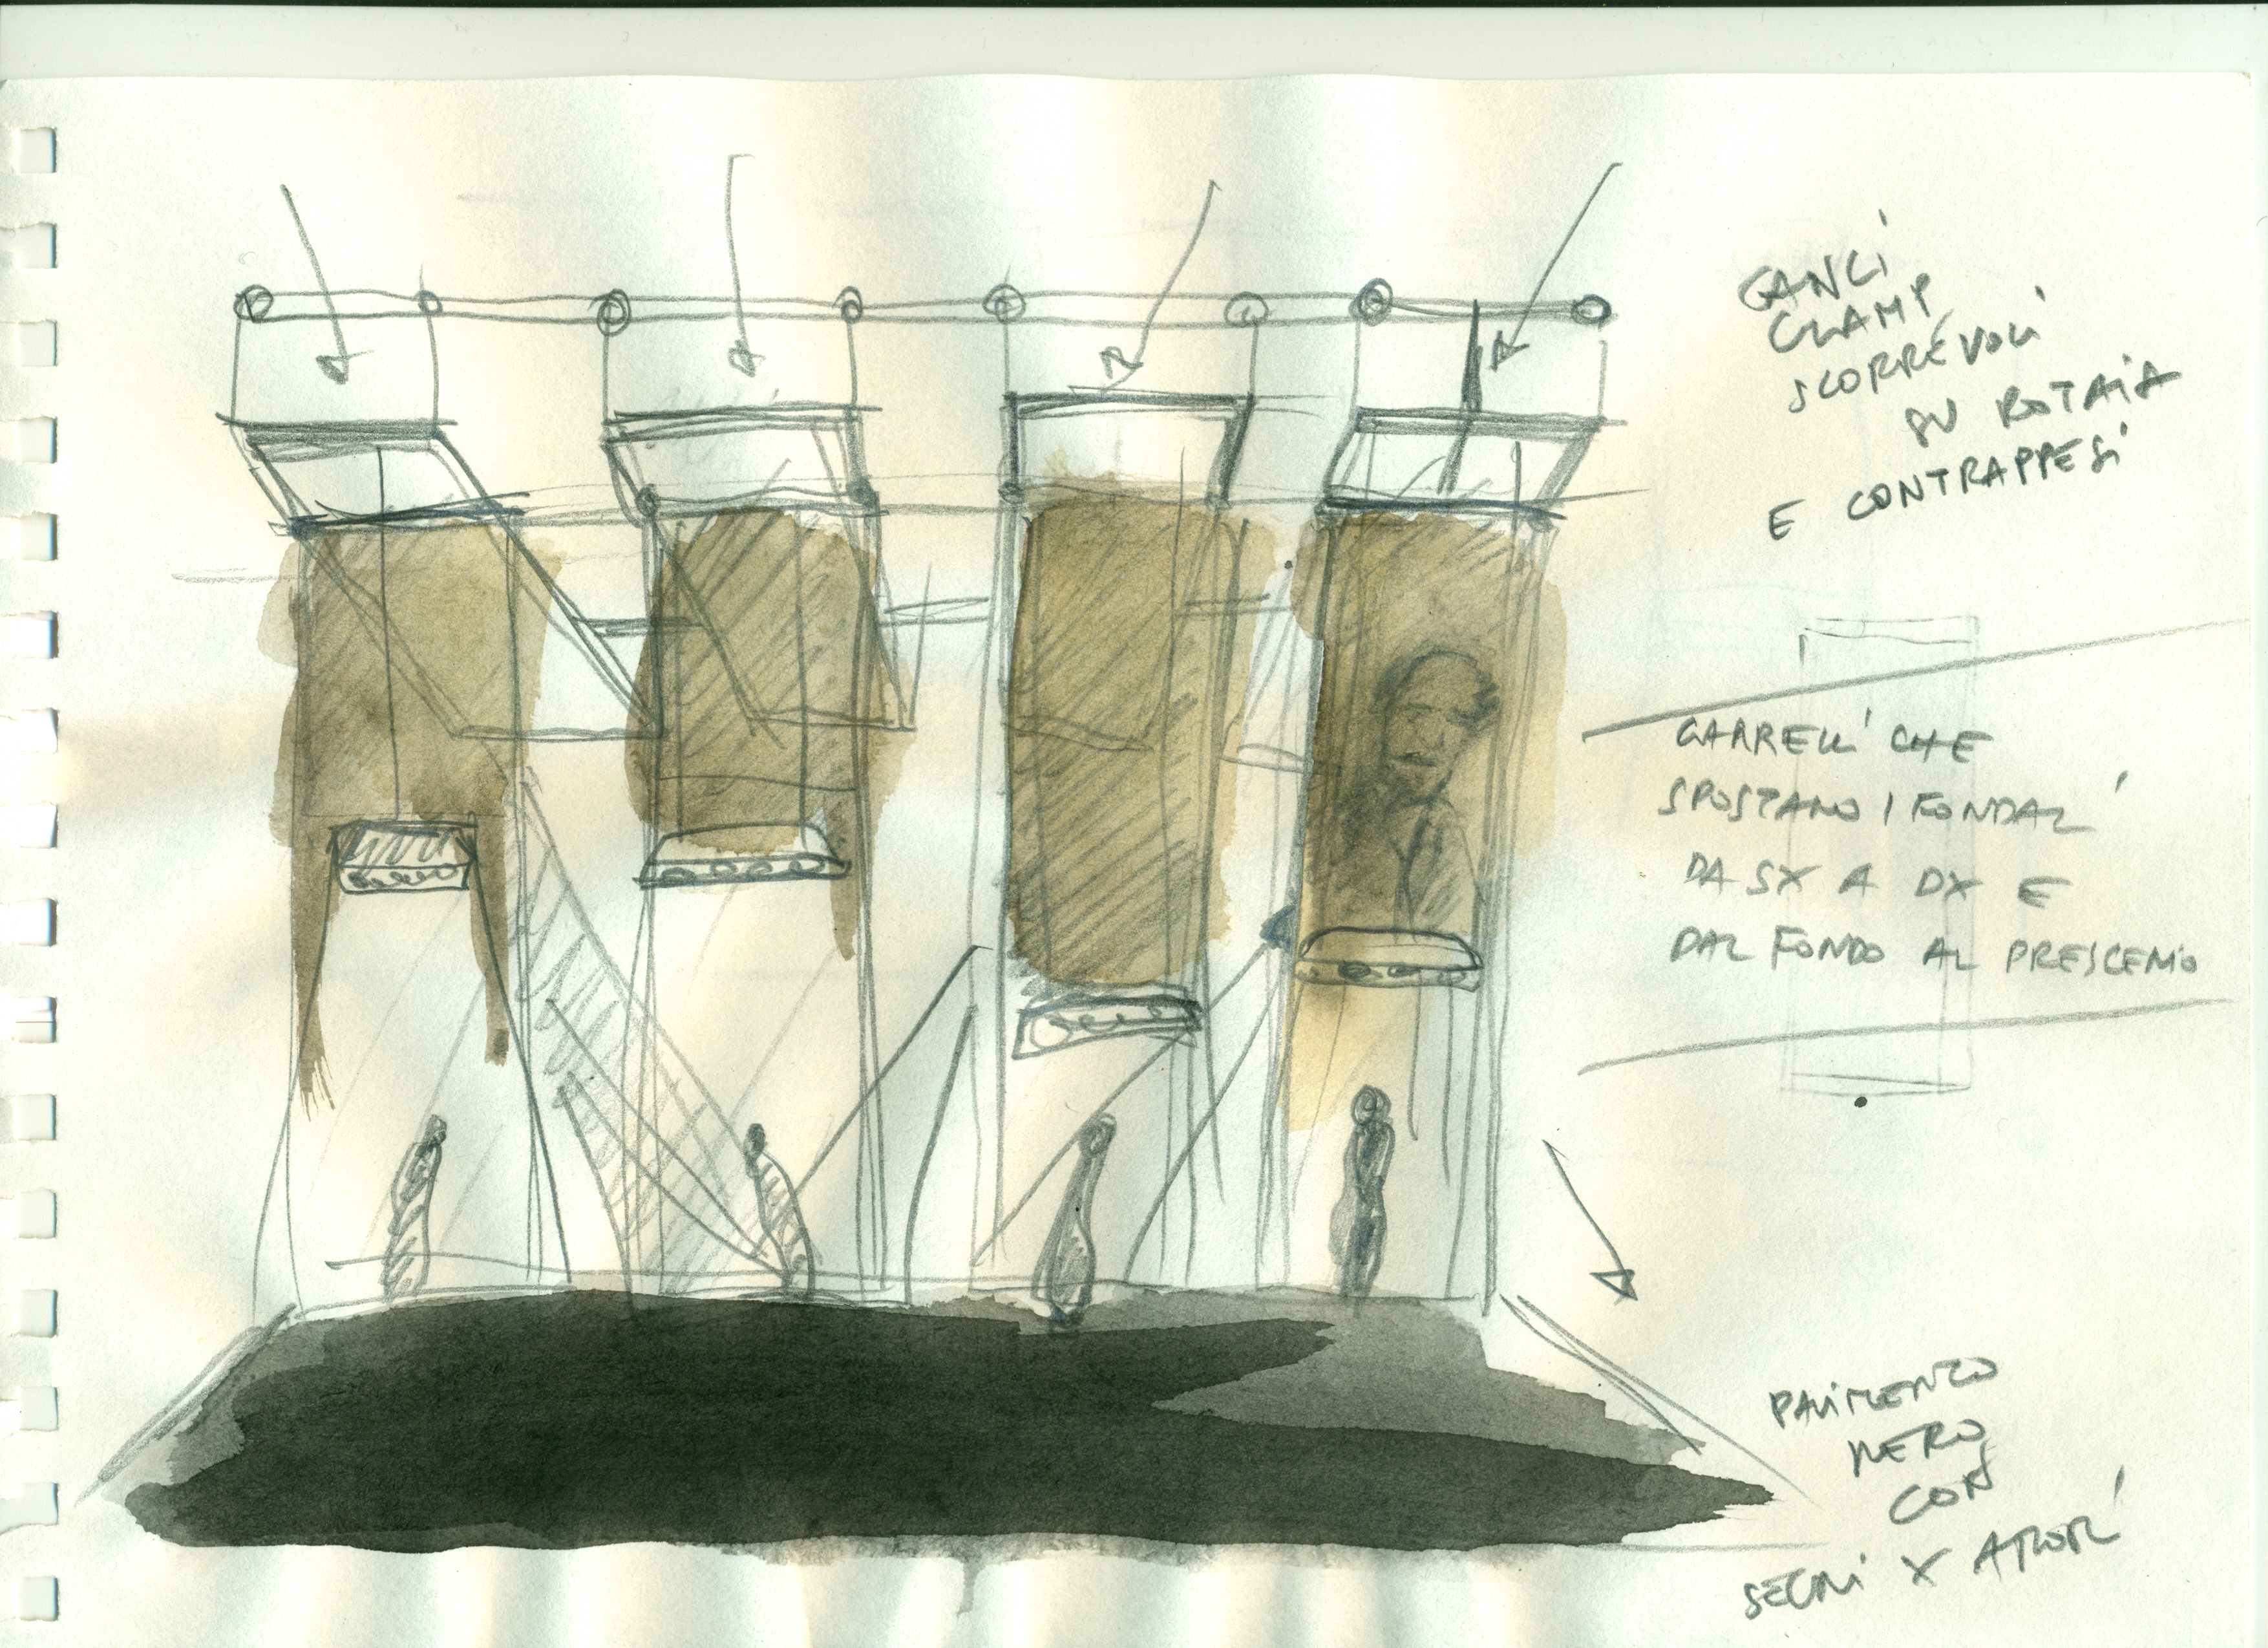 GANCI
CLAMP
SCORREVOLI
SU ROTAIA
E CONTRAPPESI
CARRELLI CHE
SPOSTANO I FONDALI
DA SX A DX E
DAL FONDO AL PROSCENIO
PAVIMENTO
NERO
CON
SEGNI X ATTORI